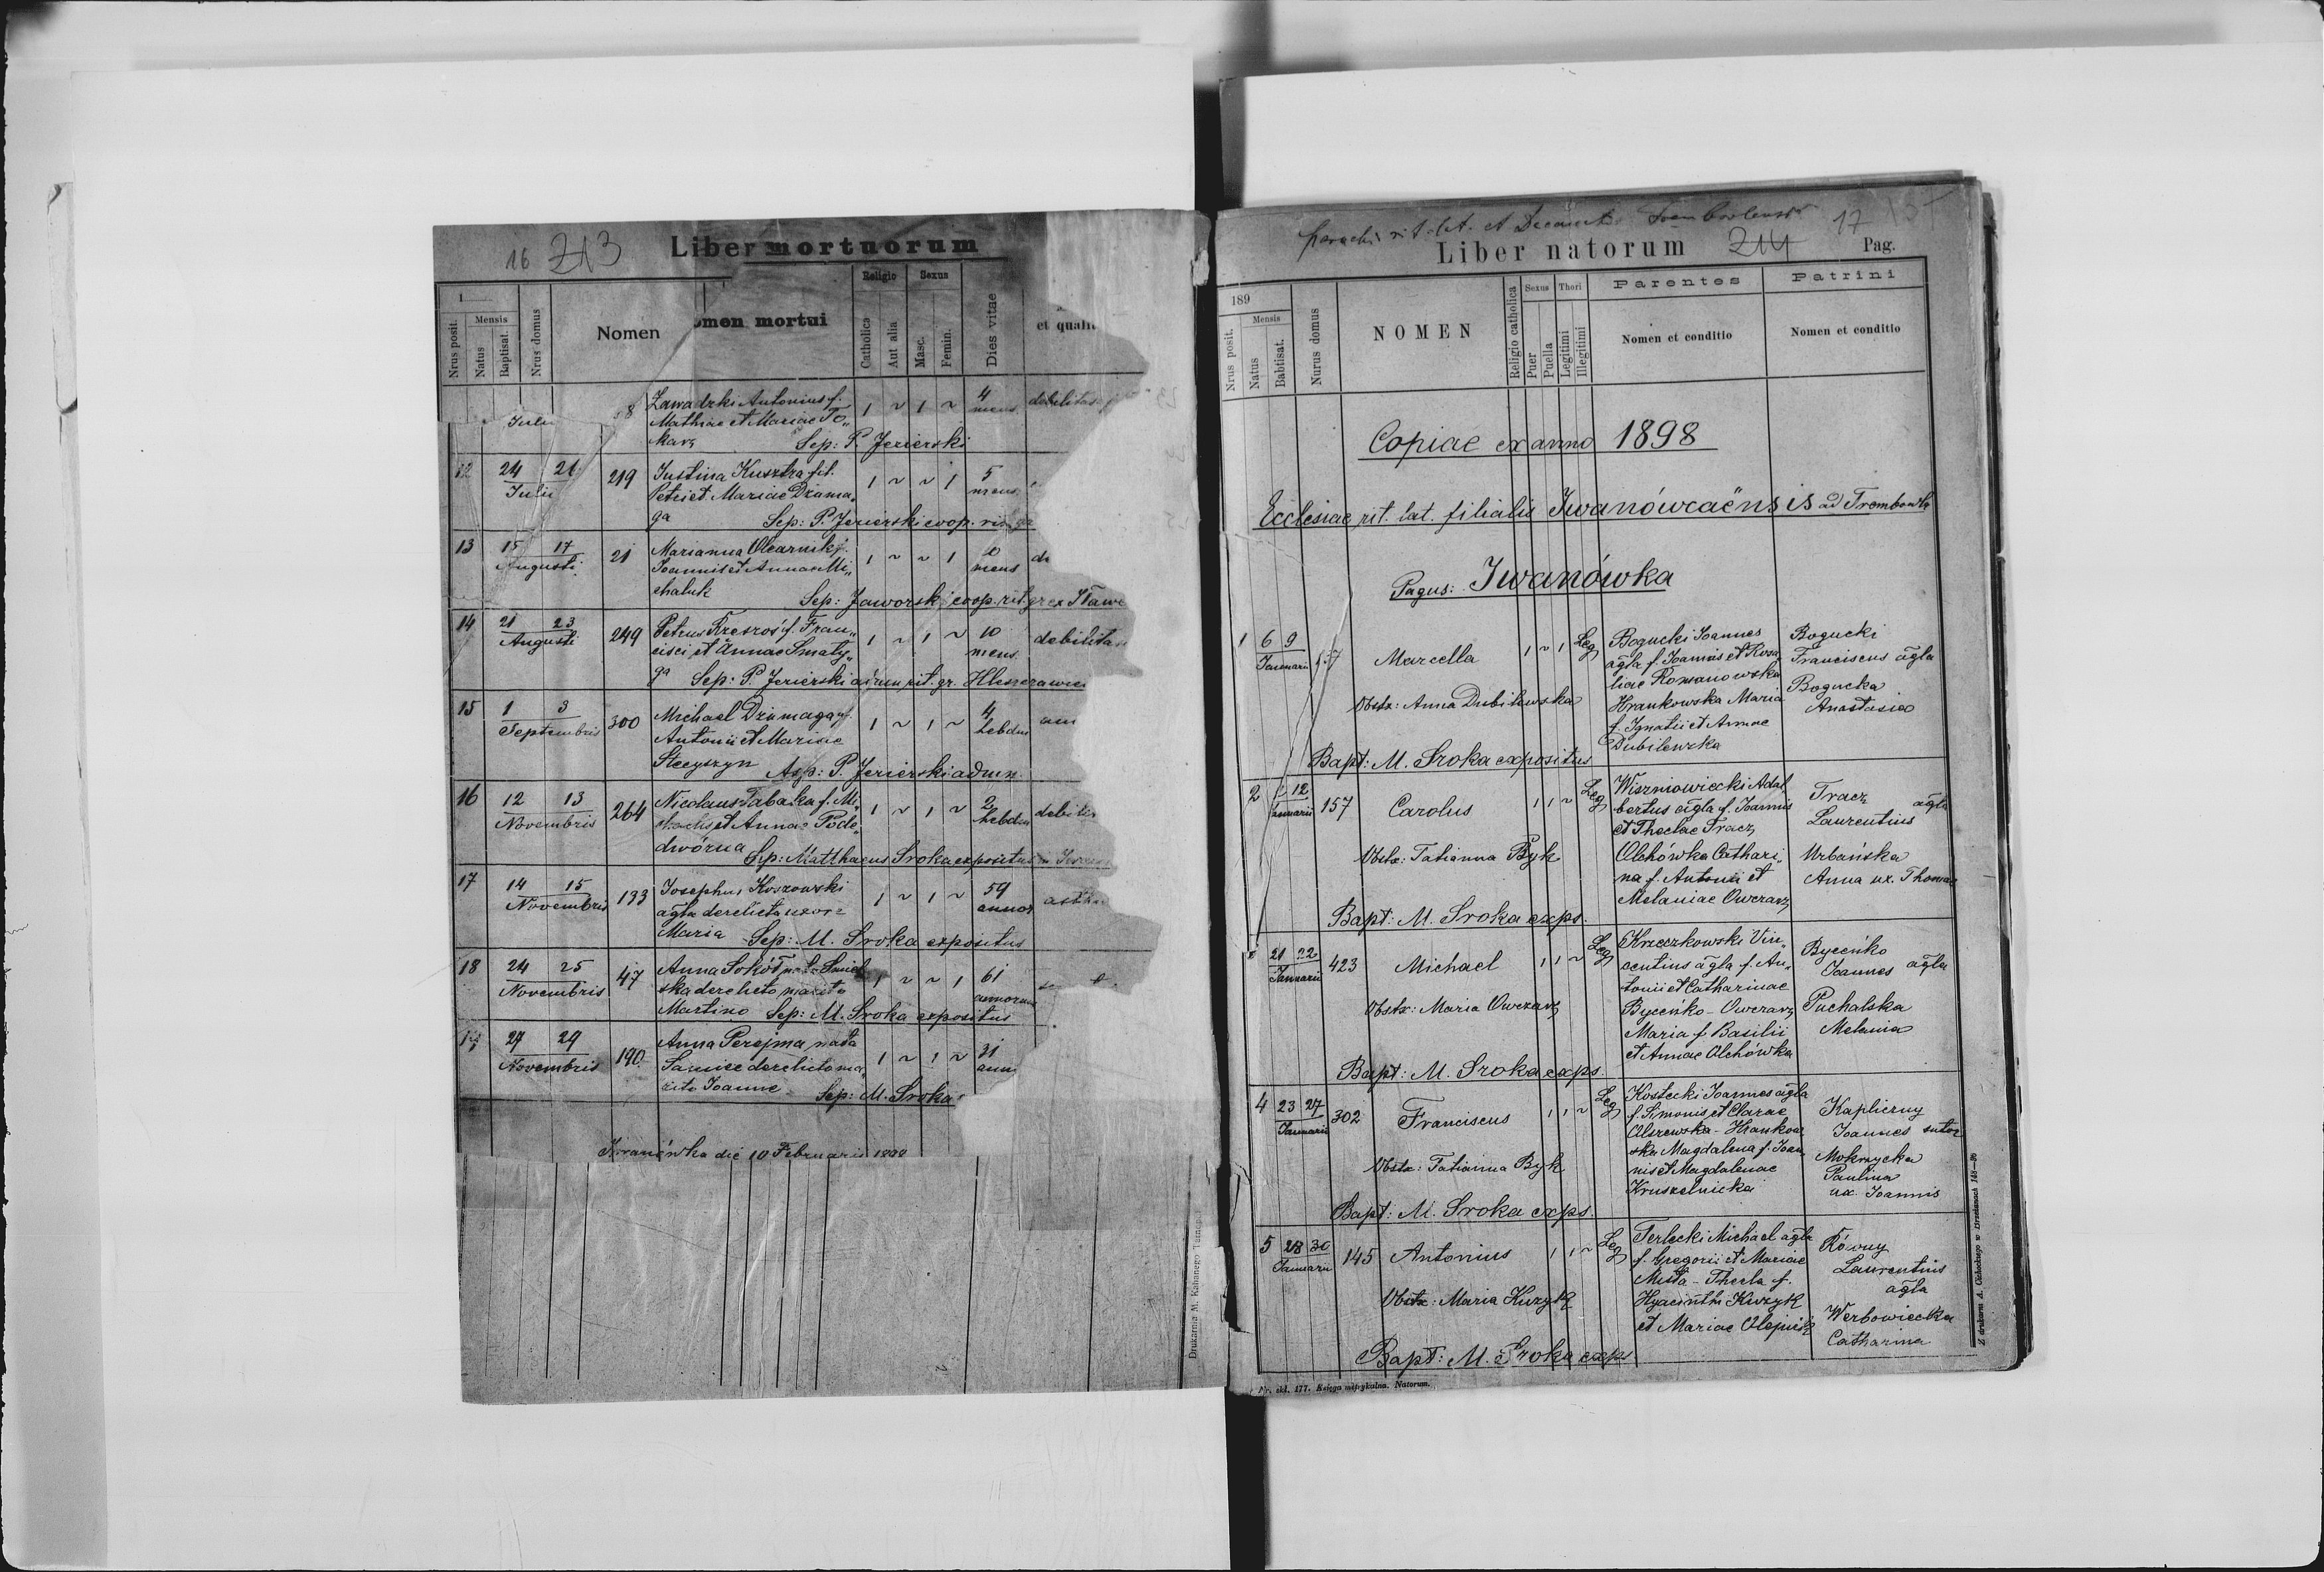 16 213
Liber mortuorum
Nrus posit.
Mensis
Natus
Baptisat.
Nrus domus
Nomen
omen mortui
Religio
Catholica
Aut alia
Sexus
Masc.
Femin.
Dies vitae
et quali
Julii 8 Zawadzki Antonius f. 1 ~ 1 ~ 4 mens debilitas
Mathiae et Mariae To„
karz Sep: P. Jezierski
12 24 21 Julii 219 Justina Kusztra fil. 1 ~ ~ 1 5 mens.
Petri et Mariae Dziuma„
ga Sep: P. Jezierski coop.
13 15 17 Augusti 21 Marianna Olearnik f. 1 ~ ~ 1 mens de
Joannis et Annae Mi„
chaluk Sep: Jaworski coop. rit. gr.
14 21 23 Augusti 249 Petrus Rzeszoś f. Fran„ 1 ~ 1 ~ 10 mens. debilitas
cisci et Annae Smaty„
ga Sep: P. Jezierski rit. gr.
15 1 3 Septembris 300 Michael Dziumaga f. 1 ~ 1 ~ 4 hebdom
Antonii et Mariae
Steyszyn P. Jezierski adm.
16 12 13 Novembris 264 Nicolaus Tabaka f. Mi„ 1 ~ 1 ~ 2 hebdom debilit
et Annae Pode„
dwórna Sep: Matthaeus Sroka expositus
17 14 15 Novembris 133 Josephus Koszowski 1 ~ 1 ~ 59 annor asth
agla derelicta uxore
Maria Sep: M. Sroka expositus
18 24 25 Novembris 47 Anna Sokół nata 1 ~ ~ 1 61 annorum
ska derelicto marito
Martino Sep: M. Sroka expositus
27 29 Novembris 190 Anna Perejma nata 1 ~ 1 ~ 31 ann
derelicto ma„
rito Joanne Sep: M. Sroka
Iwanówka die 10 Februarii 1898
Drukarnia M. Kahanego
214 17
Liber natorum
Pag.
189
Nrus posit.
Mensis
Natus
Babtisat.
Nurus domus
NOMEN
Religio catholica
Sexus
Puer
Puella
Thori
Legitimi
Illegitimi
Parentes
Nomen et conditio
Patrini
Nomen et conditio
Copiae ex anno 1898
Ecclesiae rit. lat. filialis Iwanówcaënsis ad Trembowla
Pagus: Iwanówka
1 6 9 Januarii 157 Marcella 1 ~ 1 Leg
Bogucki Joannes
agla f. Joannis et Rosa
liae Romanowska
Hrankowska Maria
f. Ignatii et Annae
Dubilewska
Bogucki
Franciscus agla
Bogucka
Anastasia
Obstx: Anna Dubilewska
Bapt: M. Sroka expositus
2 12 Januarii 157 Carolus 1 1 ~ Leg
Wiszniowiecki Adal„
bertus agla f. Joannis
et Theclae Tracz
Olchówka Cathari„
na f. Antonii et
Melaniae Owczarz
Tracz agla
Laurentius
Urbańska
Anna ux. Thomae
Obstx: Tatianna Byk
Bapt: M. Sroka exps.
21 22 Januarii 423 Michael 1 1 ~ Leg
Krzeczkowski Vin„
centius agla f. An„
tonii et Catharinae
Byceńko - Owczarz
Maria f. Basilii
et Annae Olchówka
Byceńko
Joannes agla
Puchalska
Melania
Obstx: Maria Owczarz
Bapt: M. Sroka exps.
4 23 27 Januarii 302 Franciscus 1 1 ~ Leg
Kostecki Joannes agla
f. Simonis et Clarae
Olszewska - Hrankow
ska Magdalena f. Joan
nis et Magdalenae
Kruszelnicka
Kapliczny
Joannes sutor
Mokrzycka
Paulina
ux. Joannis
Obstx: Tatianna Byk
Bapt: M. Sroka exps.
5 28 30 Januarii 145 Antonius 1 1 ~ Leg
Terlecki Michael agla
f. Gregorii et Mariae
Muta - Thecla f.
Hyacinthi Kuzyk
et Mariae Olejnik
Równy
Laurentius
agla
Werbowiecka
Catharina
Obstx: Maria Kuzyk
Bapt: M. Sroka exps
Nr. skł. 177. Księga metrykalna. Natorum.
Z drukarni A. Cichockiego w Brzeżanach